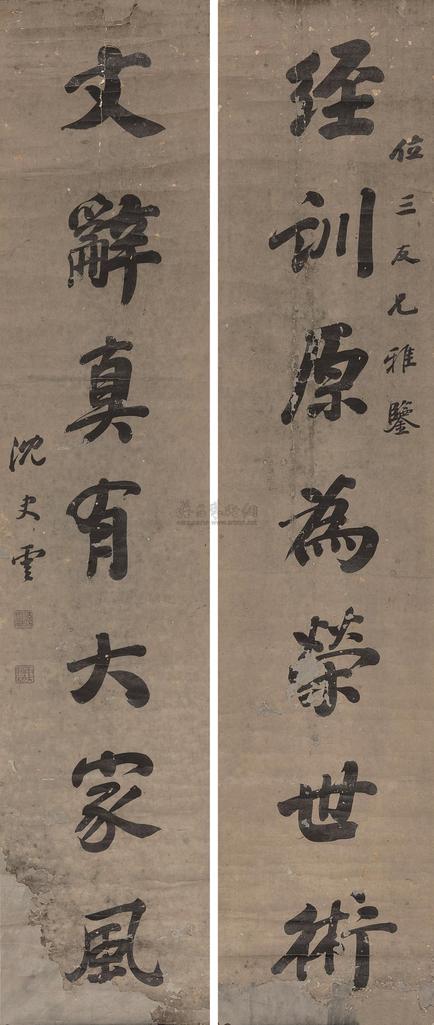 位三友兄雅鑒
經訓原為榮世術
文辭真有大家風
沈史雲